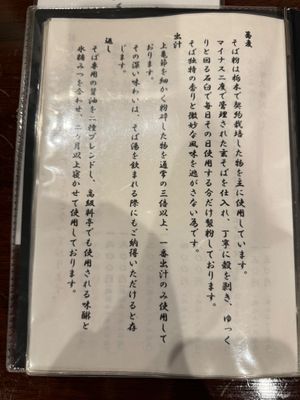 蕎麦
そば粉は栃木で契約栽培した物を主に使用しています。
マイナス二度で管理された玄そばを仕入れ、丁寧に殻を剥き、ゆっく
りと回る石臼で毎日その日使用する分だけ製粉しております。
そば独特の香りと微妙な風味を逃がさない為です。
出汁
上亀節を細かく粉砕した物を通常の三倍以上、一番出汁のみ使用して
おります。
その深い味わいは、そば湯を飲まれる際にもご納得いただけると存
じます。
返し
そば専用の醤油を二種ブレンドし、高級料亭でも使用される味醂と
氷糖みつを合わせ、二ヶ月以上寝かせて使用しております。